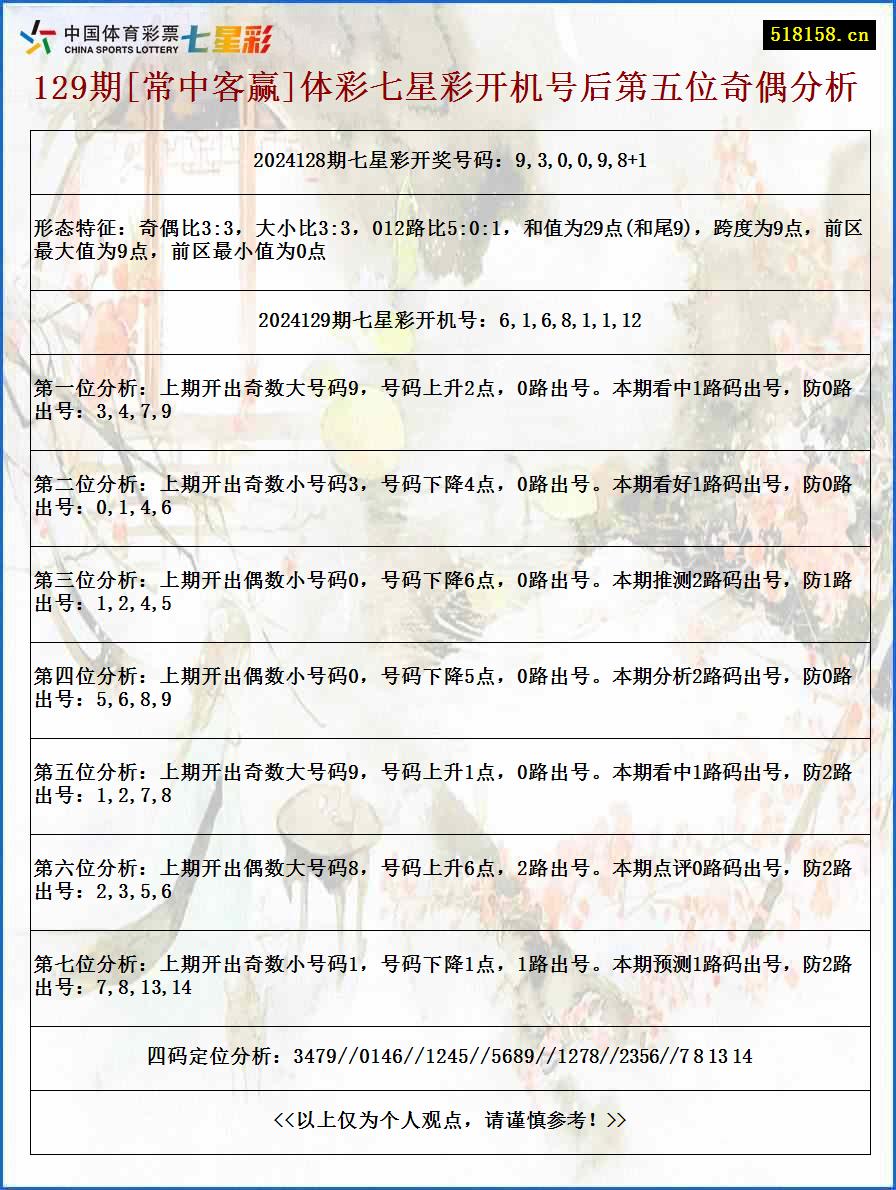 中国体育彩票
CHINA SPORTS LOTTERY
七星彩
518158.cn
129期[常中客赢]体彩七星彩开机号后第五位奇偶分析
2024128期七星彩开奖号码：9,3,0,0,9,8+1
形态特征：奇偶比3:3，大小比3:3，012路比5:0:1，和值为29点(和尾9)，跨度为9点，前区
最大值为9点，前区最小值为0点
2024129期七星彩开机号：6,1,6,8,1,1,12
第一位分析：上期开出奇数大号码9，号码上升2点，0路出号。本期看中1路码出号，防0路
出号：3,4,7,9
第二位分析：上期开出奇数小号码3，号码下降4点，0路出号。本期看好1路码出号，防0路
出号：0,1,4,6
第三位分析：上期开出偶数小号码0，号码下降6点，0路出号。本期推测2路码出号，防1路
出号：1,2,4,5
第四位分析：上期开出偶数小号码0，号码下降5点，0路出号。本期分析2路码出号，防0路
出号：5,6,8,9
第五位分析：上期开出奇数大号码9，号码上升1点，0路出号。本期看中1路码出号，防2路
出号：1,2,7,8
第六位分析：上期开出偶数大号码8，号码上升6点，2路出号。本期点评0路码出号，防2路
出号：2,3,5,6
第七位分析：上期开出奇数小号码1，号码下降1点，1路出号。本期预测1路码出号，防2路
出号：7,8,13,14
四码定位分析：3479//0146//1245//5689//1278//2356//7 8 13 14
<<以上仅为个人观点，请谨慎参考！>>